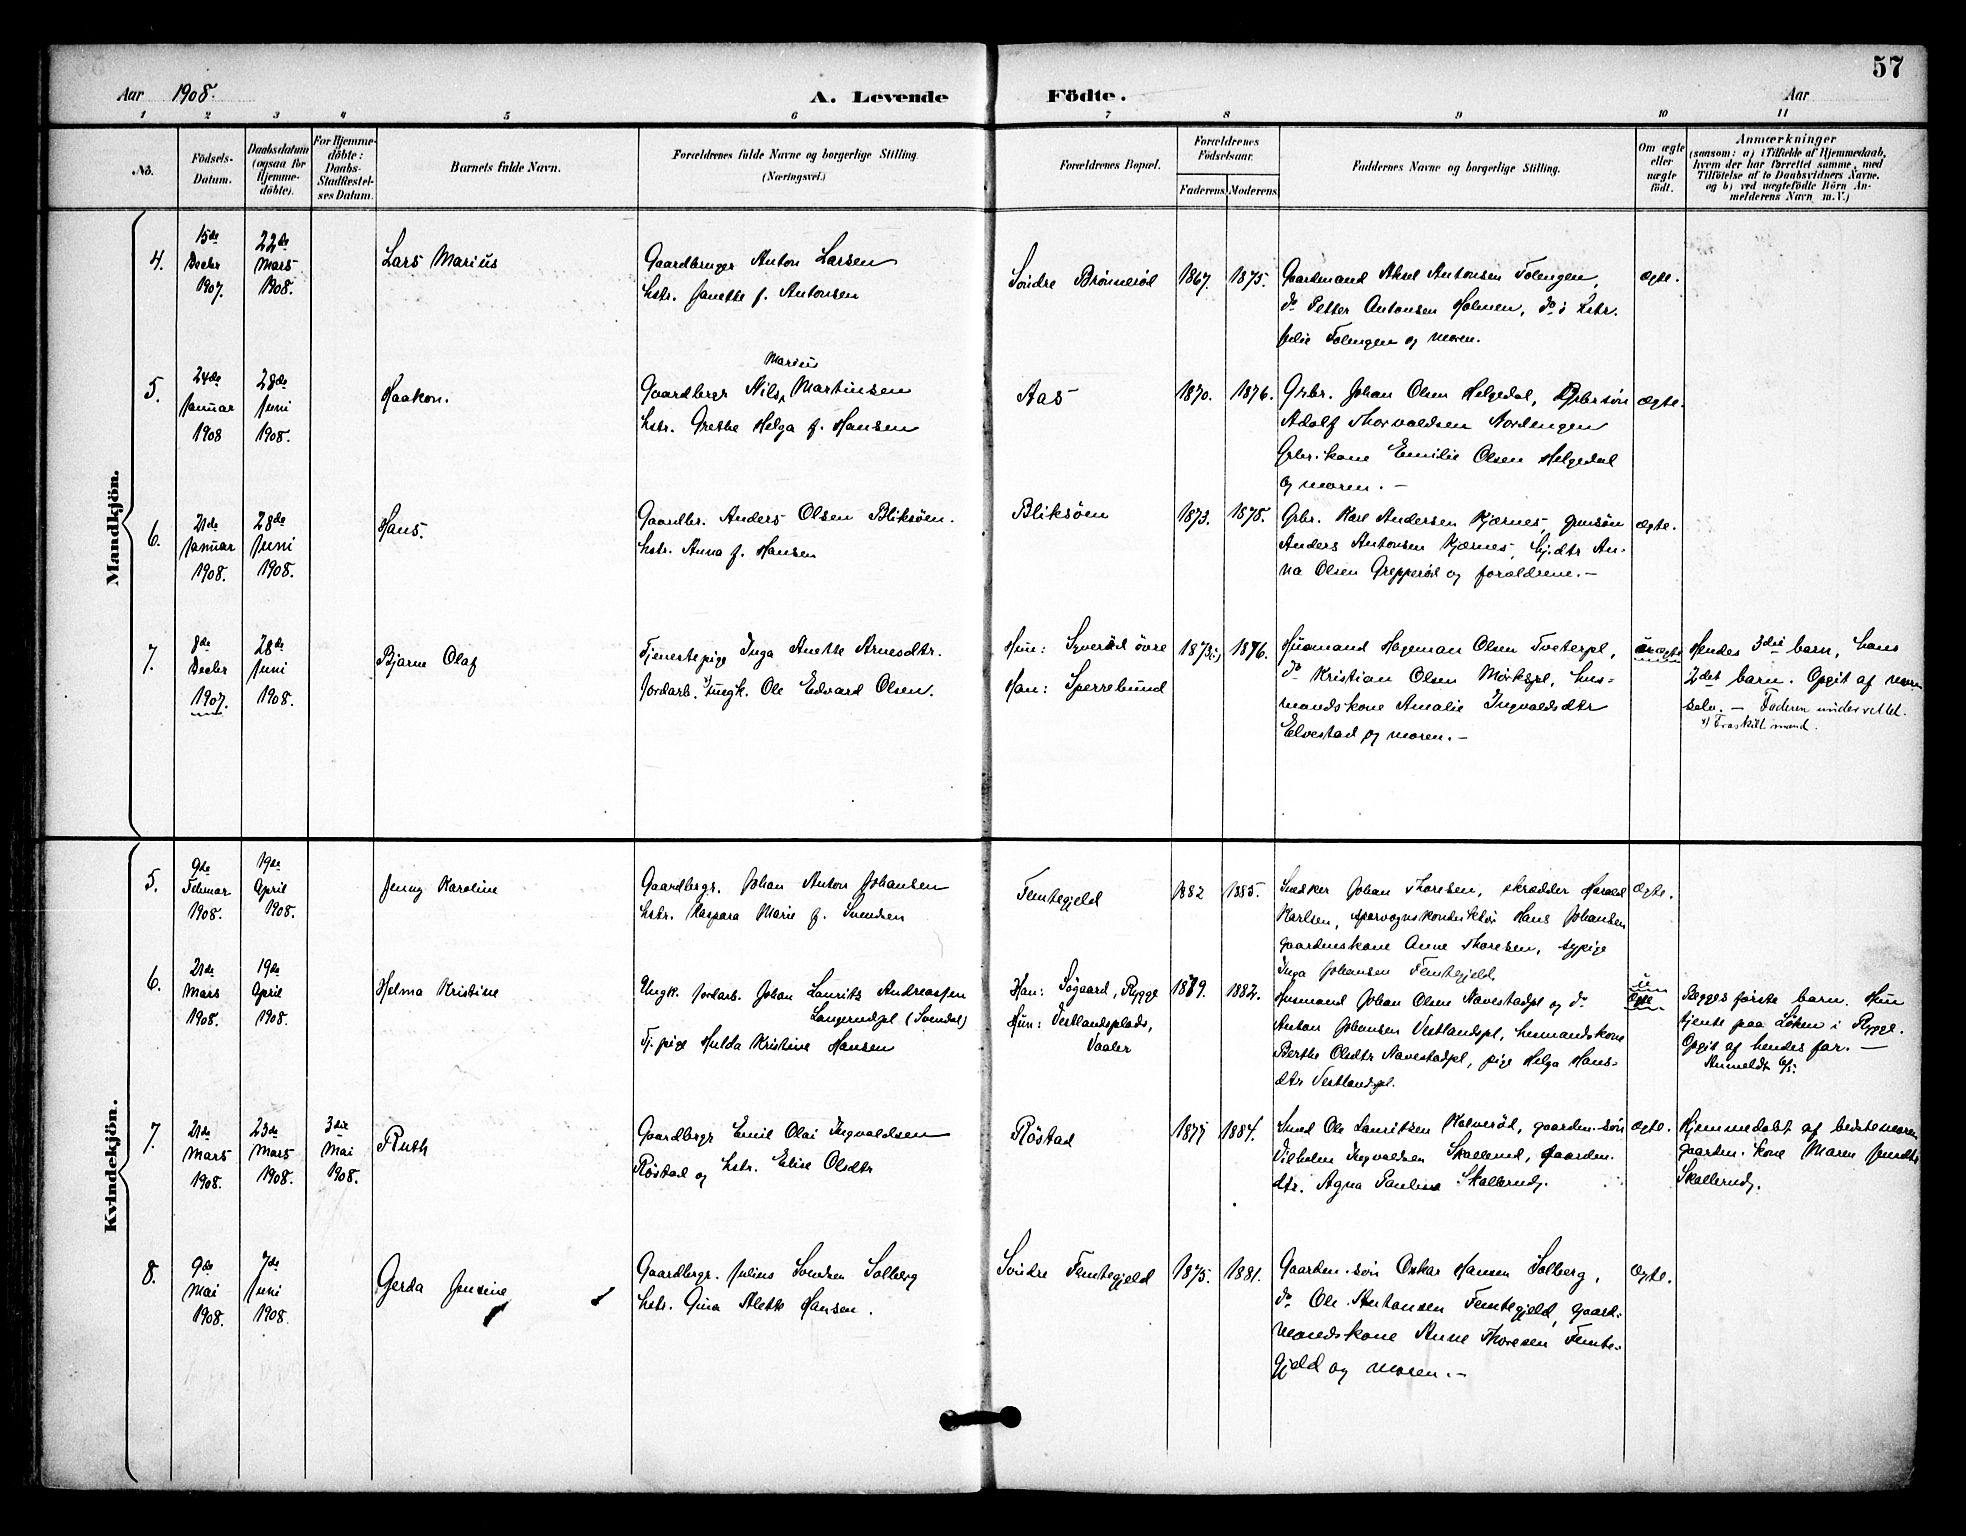 57
Aar 1908.
A. Levende Födte.
Aar
1 2 3 4 5 6 7 8 9 10 11
No.
Födsels-
Datum.
Daabsdatum
(ogsaa for
Hjemme-
döbte).
For Hjemme-
döbte:
Daabs-
Stadfæstel-
ses Datum.
Barnets fulde Navn.
Forældrenes fulde Navne og borgerlige Stilling.
(Næringsvei.)
Forældrenes Bopæl.
Forældrenes
Födselsaar.
Faderens. Moderens.
Faddernes Navne og borgerlige Stilling.
Om ægte
eller
uægte
født.
Anmærkninger
(saasom: a) i Tilfælde af Hjemmedaab,
hvem der har forrettet samme, med
Tilföielse af to Daabsvidners Navne,
og b) ved uægtefödte Börn An-
melderens Navn m. V.)
Mandkjön.
4.
15de
Decbr
1907.
22de
Mars
1908.
Lars Marius
Gaardbruger Anton Larsen
hstr. Janette f. Antonsen
Söndre Brönneröd
1867. 1875.
Gaardmand Aksel Antonsen Folengen,
do Petter Antonsen Holmen, do's hstr.
Julie Folengen og moren.
ægte.
5.
24de
Januar
1908
28de
Juni
1908.
Haakon.
Marius
Gaardbrgr Nils, Martinsen
hstr. Grethe Helga f. Hansen
Aas
1870. 1876.
Grbr. Johan Olsen Helgedal, Grbrsön
Adolf Thorvaldsen Nordengen
Grbr.kone Emilie Olsen Helgedal
og moren. —
ægte.
6.
21de
Januar
1908.
28de
Juni
1908.
Hans.
Gaardbr. Anders Olsen Bliksöen.
hstr. Anna f. Hansen
Bliksöen
1873. 1878.
Grbr. Karl Andersen Kjærnes, grmsön
Anders Antonsen Kjærnes, Gjdtr An-
na Olsen Grepperöd og forældrene. —
ægte.
7.
8de
Decbr
1907.
28de
Juni
1908.
Bjarne Olaf
Tjenestepige Inga Anette Arnesdtr.
Jordarb. x) Ungk. Ole Edvard Olsen.
Hun: Syveröd övre
Han: Sperrebund
1873 1876.
Husmand Hageman Olsen Tveterpl,
do Kristian Olsen Mörkspl, hus-
mandskone Amalie Ingvaldsdtr
Elvestad og moren. —
uægte
Hendes 3die barn, hans
2det barn. Opgit af moren
selv. — Faderen underrettet.
x) Fraskilt mand.
Kvindekjön.
5.
9de
Februar
1908.
19de
April
1908.
Jenny Karoline
Gaardbrgr. Johan Anton Johansen
hstr. Kaspara Marie f. Svendsen
Femtegjeld
1882 1885.
Snedker Johan Thoresen, skrædder Harald
Karlsen, sporvognskonduktör Hans Johansen
gaardmskone Anne Thoresen, sypige
Inga Johansen Femtegjeld.
ægte.
6.
21de
Mars
1908.
19de
April
1908.
Helma Kristine
Ungk. Jordarb. Johan Laurits Andreassen
Langerudpl (Svendal)
Tj. pige Hulda Kristine Hansen
Han: Sögaard, Rygge
Hun: Vestlandsplads,
Vaaler
1879. 1882.
Husmand Johan Olsen Navestadpl og do
Anton Johansen Vestlandspl, husmandskone
Berthe Olsdtr Navestadpl, pige Helga Hans-
dtr Vestlandspl.
u
ægte
Begges förste barn. Hun
tjente paa Löken i Rygge.
Opgit af hendes far. —
Anmeldt 6/5.
7.
21de
Mars
1908.
23de
Mars
1908.
3die
Mai
1908.
Ruth
Gaardbrgr Emil Olai Ingvaldsen
Röstad og hstr. Elise Olsdtr
Röstad
1877 1884.
Smed Ole Lauritzen Kalveröd, gaardm.sön
Vilhelm Ingvaldsen Skallerud, gaardm.
dtr. Agna Pauline Skallerud.
ægte.
Hjemmedöbt af bedstemoren
gaardm.kone Maren Jensdtr
Skallerud.
8.
9de
Mai
1908.
7de
Juni
1908.
Gerda Jensine
Gaardbrgr. Julius Svendsen Solberg
hstr. Gina Alette Hansen.
Söndre Femtegjeld
1875. 1881.
Gaardm.sön Oskar Hansen Solberg,
do Ole Antonsen Femtegjeld, gaard-
mandskone Anne Thoresen Femte-
gjeld og moren. —
ægte.